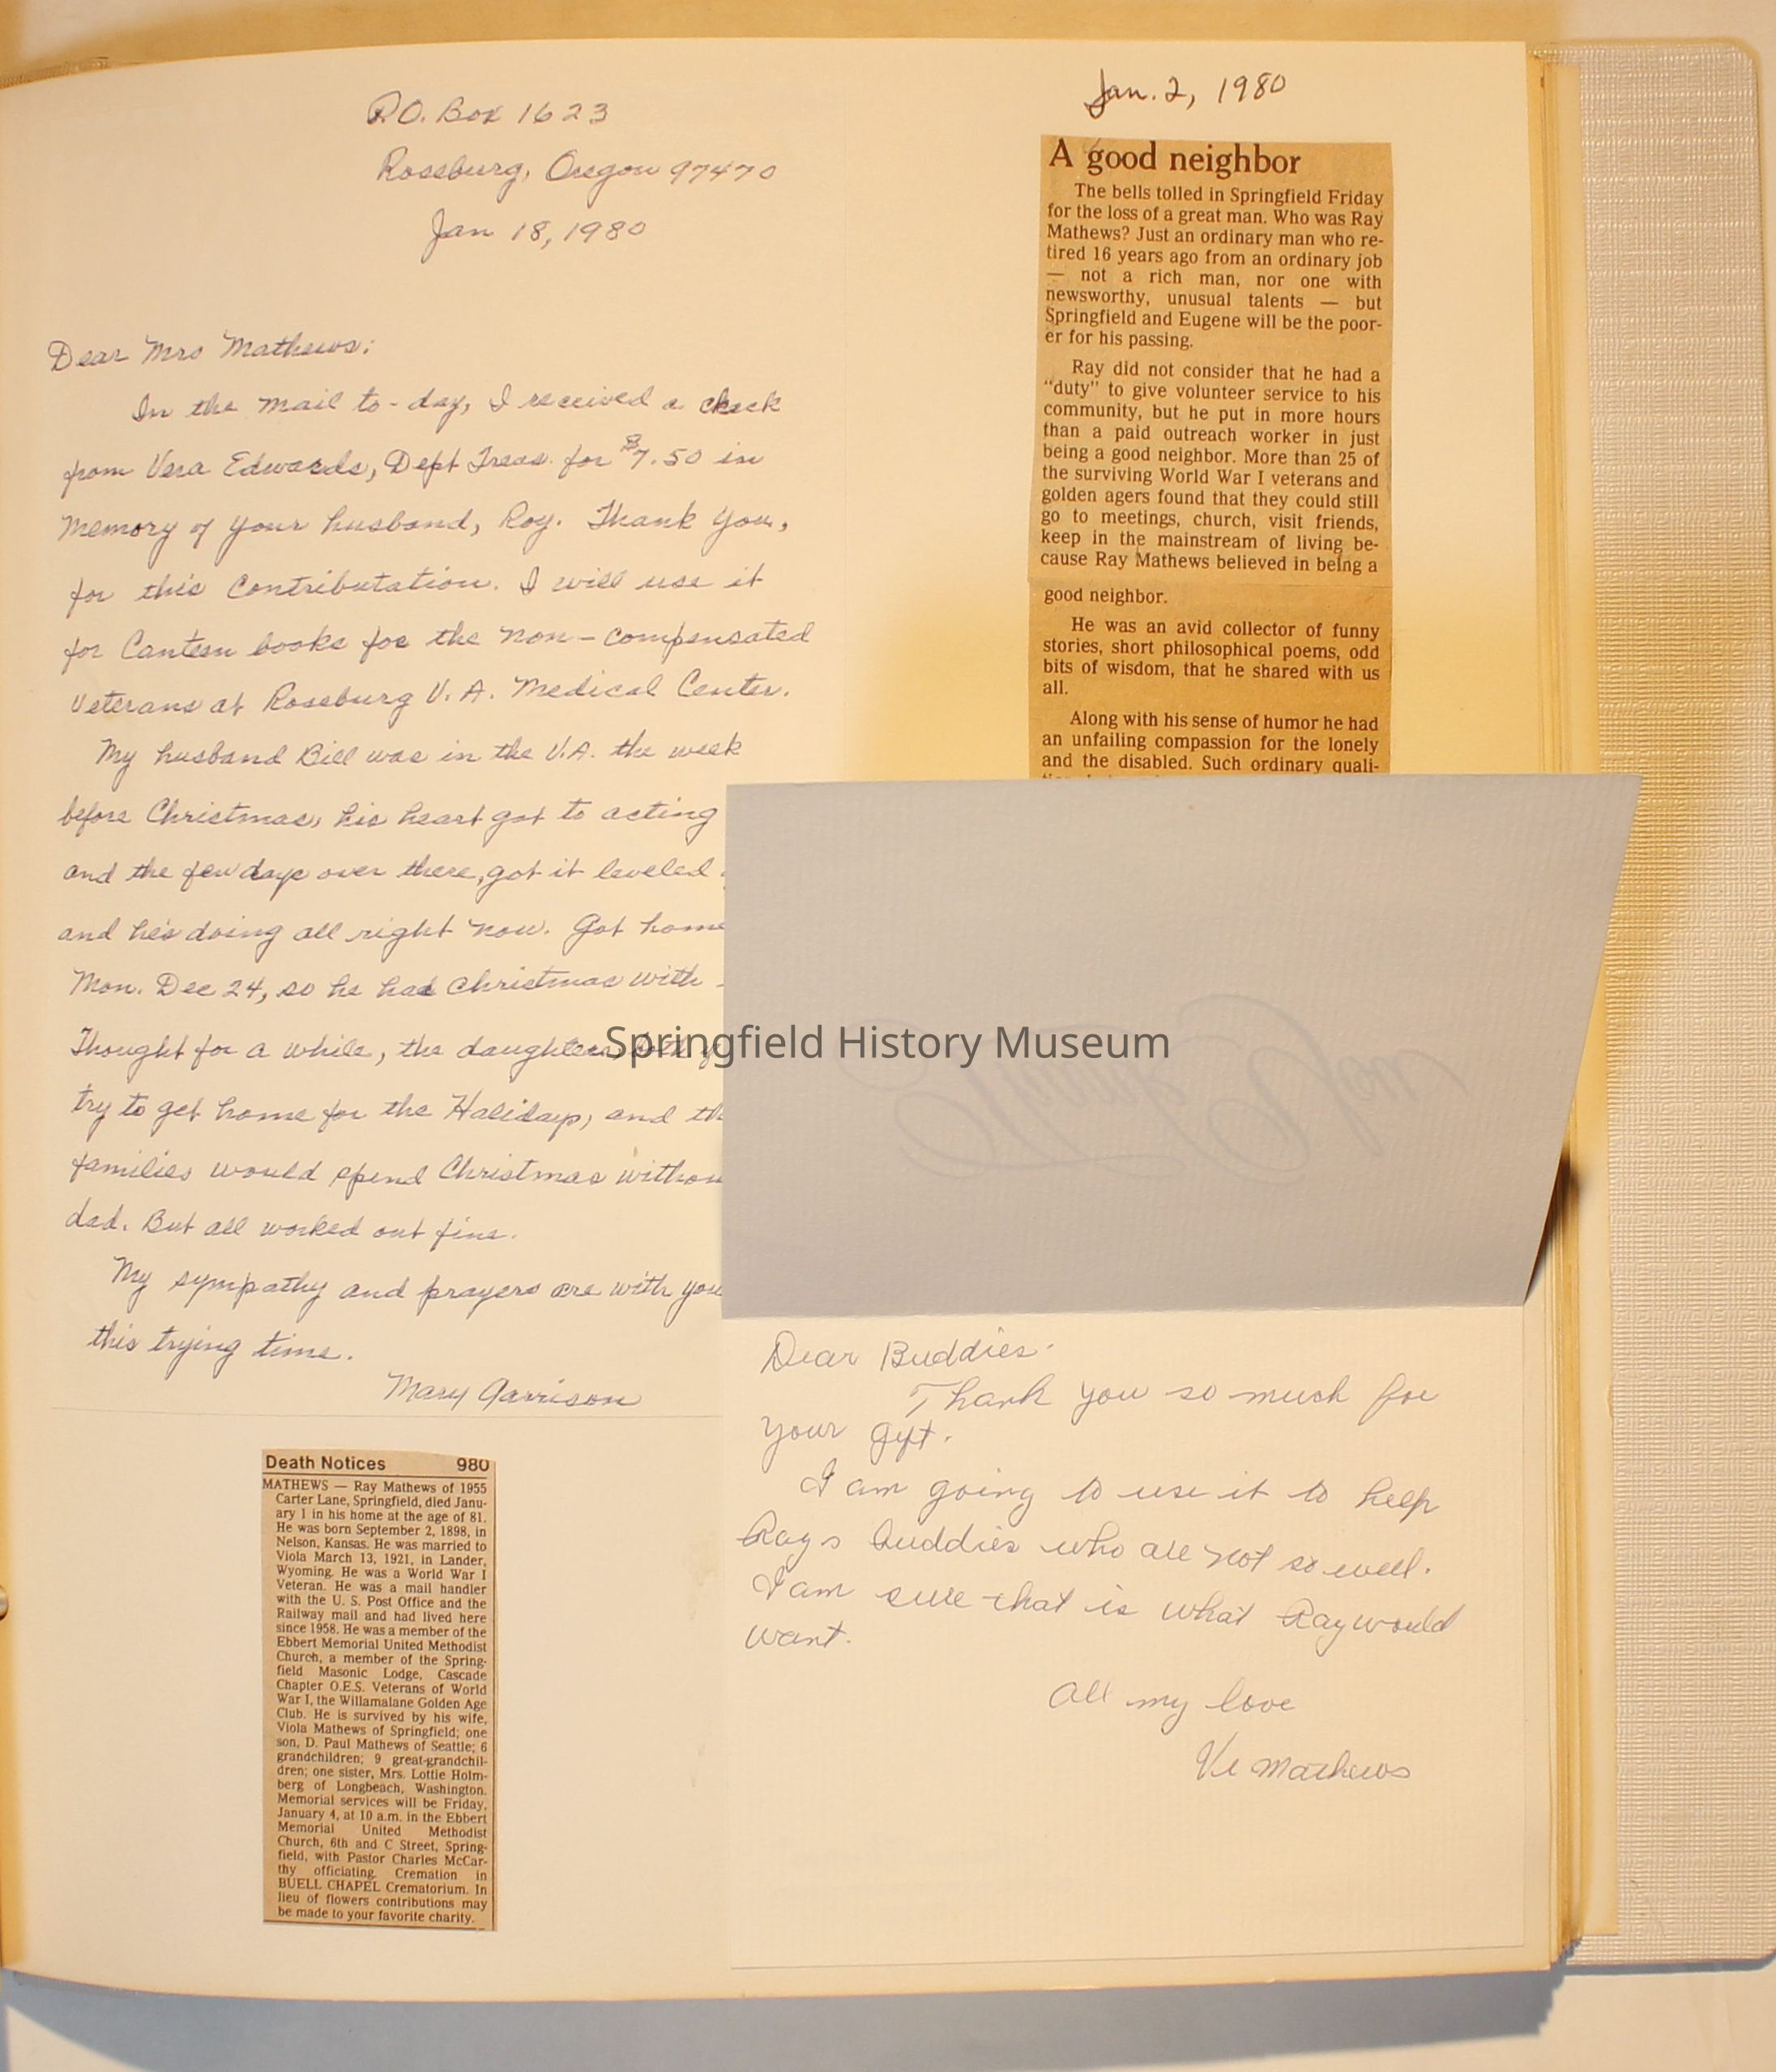 P.O. Box 1623
Roseburg, Oregon 97470
Jan 18, 1980
Dear Mrs Mathews:
In the mail to-day, I received a check
from Vera Edwards, Dept Treas. for $7.50 in
memory of your husband, Roy. Thank you,
for this Contributation. I will use it
for Canteen books for the non-compensated
Veterans at Roseburg V.A. Medical Center.
My husband Bill was in the V.A. the week
before Christmas, his heart got to acting
and the few days over there, got it leveled
and he's doing all right now. Got home
Mon. Dec 24, so he had Christmas with
Thought for a while, the daughters both
try to get home for the Holidays, and
families would spend Christmas
dad. But all worked out fine.
My sympathy and prayers are with you
this trying time.
Mary Garrison
Death Notices 980
MATHEWS — Ray Mathews of 1955
Carter Lane, Springfield, died Janu-
ary 1 in his home at the age of 81.
He was born September 2, 1898, in
Nelson, Kansas. He was married to
Viola March 13, 1921, in Lander,
Wyoming. He was a World War I
Veteran. He was a mail handler
with the U. S. Post Office and the
Railway mail and had lived here
since 1958. He was a member of the
Ebbert Memorial United Methodist
Church, a member of the Spring-
field Masonic Lodge, Cascade
Chapter O.E.S. Veterans of World
War I, the Willamalane Golden Age
Club. He is survived by his wife,
Viola Mathews of Springfield; one
son, D. Paul Mathews of Seattle; 6
grandchildren; 9 great-grandchil-
dren; one sister, Mrs. Lottie Holm-
berg of Longbeach, Washington.
Memorial services will be Friday,
January 4, at 10 a.m. in the Ebbert
Memorial United Methodist
Church, 6th and C Street, Spring-
field, with Pastor Charles McCar-
thy officiating. Cremation in
BUELL CHAPEL Crematorium. In
lieu of flowers contributions may
be made to your favorite charity.
Jan. 2, 1980
A good neighbor
The bells tolled in Springfield Friday
for the loss of a great man. Who was Ray
Mathews? Just an ordinary man who re-
tired 16 years ago from an ordinary job
— not a rich man, nor one with
newsworthy, unusual talents — but
Springfield and Eugene will be the poor-
er for his passing.
Ray did not consider that he had a
"duty" to give volunteer service to his
community, but he put in more hours
than a paid outreach worker in just
being a good neighbor. More than 25 of
the surviving World War I veterans and
golden agers found that they could still
go to meetings, church, visit friends,
keep in the mainstream of living be-
cause Ray Mathews believed in being a
good neighbor.
He was an avid collector of funny
stories, short philosophical poems, odd
bits of wisdom, that he shared with us
all.
Along with his sense of humor he had
an unfailing compassion for the lonely
and the disabled. Such ordinary quali-
Springfield History Museum
Thank You
Dear Buddies.
Thank you so much for
your gift.
I am going to use it to help
Rays buddies who are not so well.
I am sure that is what Ray would
want.
All my love
Vi Mathews